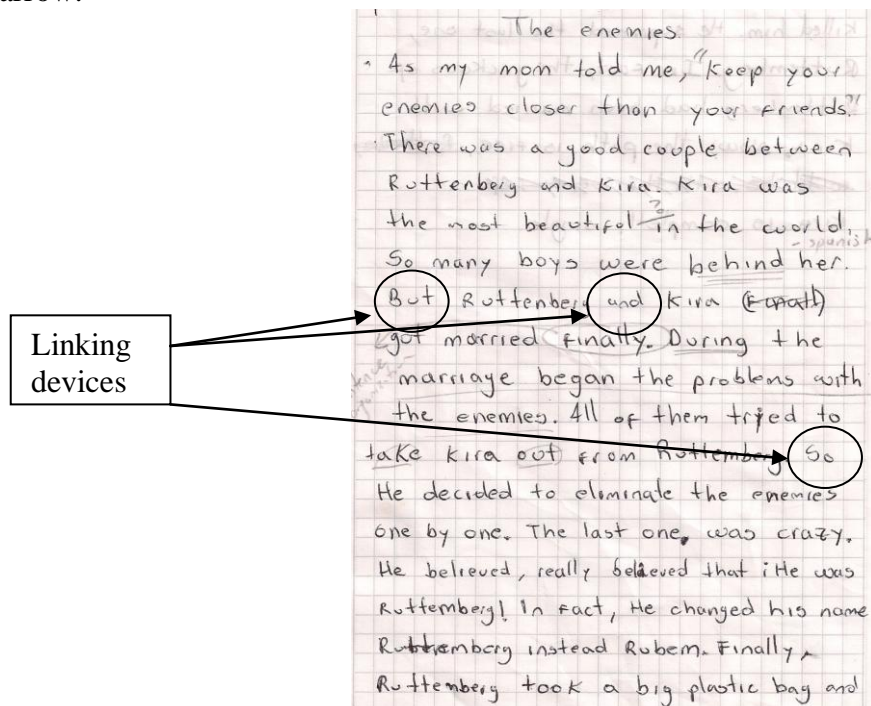 arrow.
The enemies
As my mom told me, "Keep your
enemies closer than your friends."
There was a good couple between
Ruttenberg and Kira. Kira was
?
the most beautiful in the world.
- spanish
So many boys were behind her.
But Ruttenberg and Kira (Finall)
got married finally. During the
Linking
devices
marriage began the problems with
the enemies. All of them tried to
take Kira out from Ruttemberg So
He decided to eliminate the enemies
one by one. The last one, was crazy.
He believed, really believed that ¡He was
Ruttemberg! In fact, He changed his name
Ruttemberg instead Rubem. Finally,
Ruttenberg took a big plastic bag and